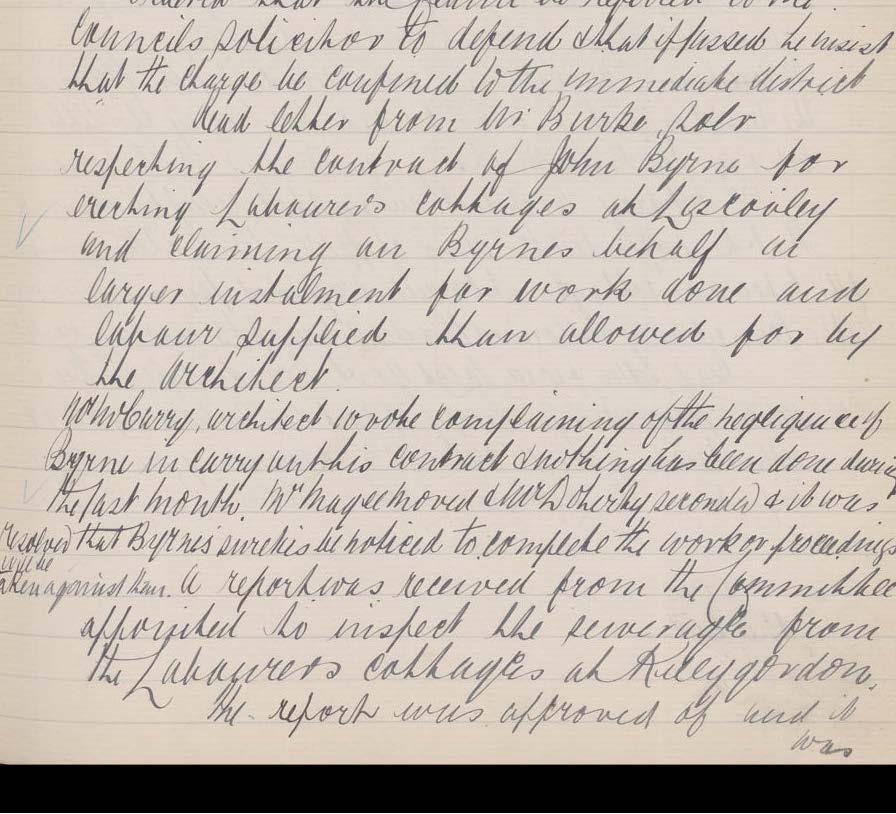 ordered that the claim be referred to the
Councils solicitor to defend & that if passed he insist
that the charge be confined to the immediate district
Read letter from Mr Burke, Solr
respecting the contract of John Byrne for
erecting Labourers cottages at Liscooley
and claiming on Byrnes behalf a
larger instalment for work done and
labour supplied than allowed for by
the Architect.
Mr McCarry, architect wrote complaining of the negligence of
Byrne in carry out his contract & nothing has been done during
the last month. Mr Magee moved & Mr Doherty seconded & it was
resolved that Byrnes' sureties be noticed to complete the work or proceedings
will be
taken against them. A report was received from the Committee
appointed to inspect the sewerage from
the Labourers cottages at Killygordon.
The report was approved of and it
was